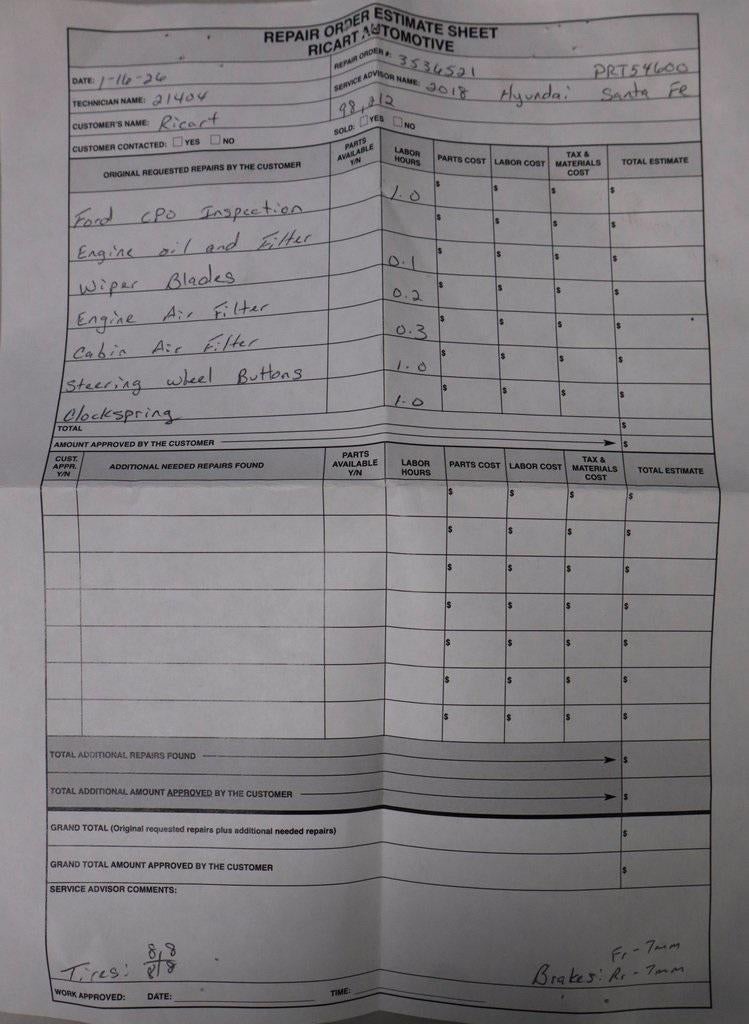 REPAIR ORDER ESTIMATE SHEET
RICART AUTOMOTIVE
DATE: 1-16-26
REPAIR ORDER #: 3536521 PRT54600
TECHNICIAN NAME: 21404
SERVICE ADVISOR NAME: 2018 Hyundai Santa Fe
CUSTOMER'S NAME: Ricart 98,212
CUSTOMER CONTACTED: YES NO
SOLD: YES NO
ORIGINAL REQUESTED REPAIRS BY THE CUSTOMER PARTS AVAILABLE Y/N LABOR HOURS PARTS COST LABOR COST TAX & MATERIALS COST TOTAL ESTIMATE
Ford CPO Inspection 1.0 $ $ $ $
Engine oil and Filter $ $ $ $
Wiper Blades 0.1 $ $ $ $
Engine Air Filter 0.2 $ $ $ $
Cabin Air Filter 0.3 $ $ $ $
Steering wheel Buttons 1.0 $ $ $ $
Clockspring 1.0 $ $ $ $
TOTAL $
AMOUNT APPROVED BY THE CUSTOMER $
CUST. APPR. Y/N ADDITIONAL NEEDED REPAIRS FOUND PARTS AVAILABLE Y/N LABOR HOURS PARTS COST LABOR COST TAX & MATERIALS COST TOTAL ESTIMATE
$ $ $ $
$ $ $ $
$ $ $ $
$ $ $ $
$ $ $ $
$ $ $ $
$ $ $ $
TOTAL ADDITIONAL REPAIRS FOUND $
TOTAL ADDITIONAL AMOUNT APPROVED BY THE CUSTOMER $
GRAND TOTAL (Original requested repairs plus additional needed repairs) $
GRAND TOTAL AMOUNT APPROVED BY THE CUSTOMER $
SERVICE ADVISOR COMMENTS:
8 8
Tires: 8 8
Fr - 7mm
Brakes: Rr - 7mm
WORK APPROVED: DATE: TIME: